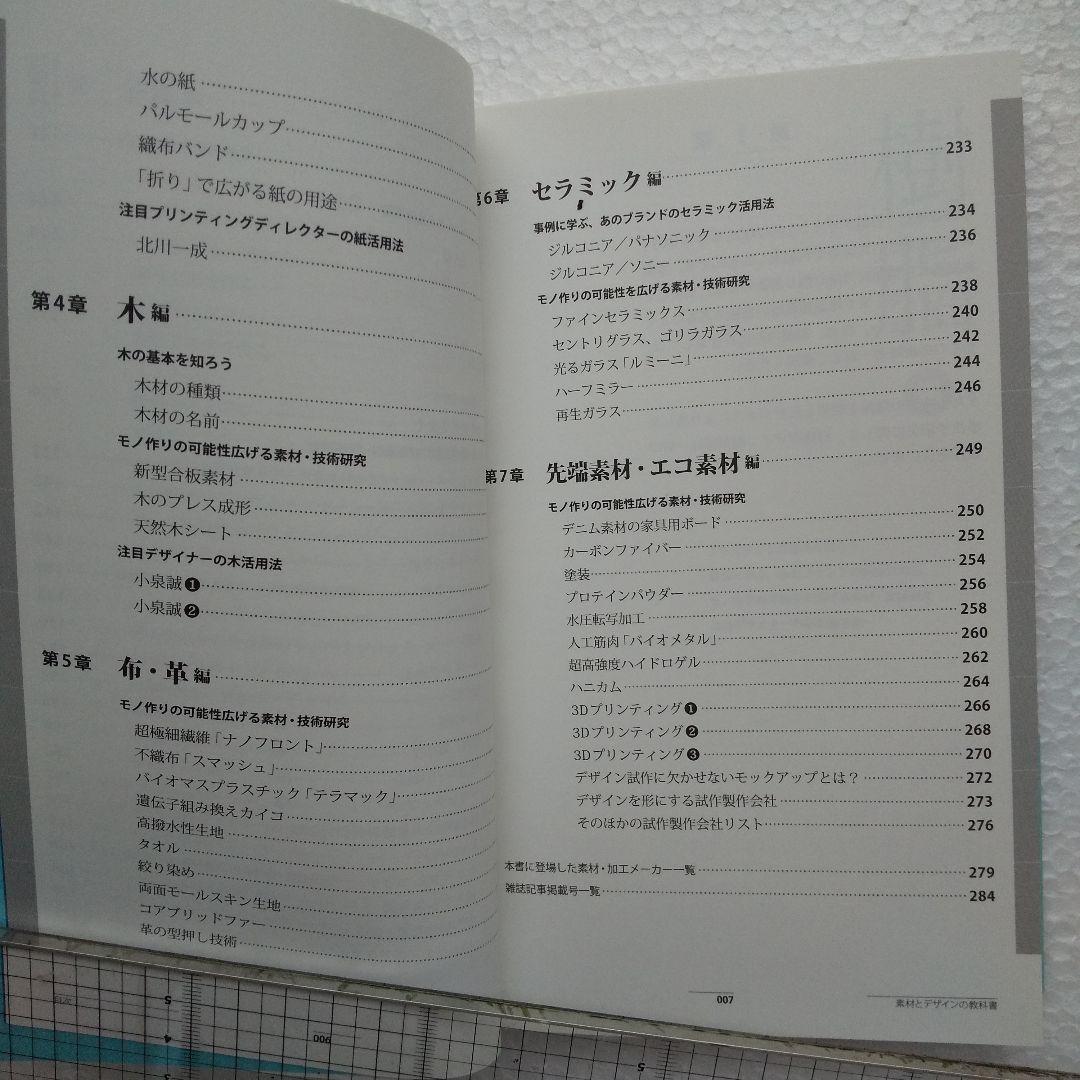 水の紙
パルモールカップ
織布バンド
「折り」で広がる紙の用途
注目プリンティングディレクターの紙活用法
北川一成
第4章 木 編
木の基本を知ろう
木材の種類
木材の名前
モノ作りの可能性広げる素材・技術研究
新型合板素材
木のプレス成形
天然木シート
注目デザイナーの木活用法
小泉誠❶
小泉誠❷
第5章 布・革 編
モノ作りの可能性広げる素材・技術研究
超極細繊維「ナノフロント」
不織布「スマッシュ」
バイオマスプラスチック「テラマック」
遺伝子組み換えカイコ
高撥水性生地
タオル
絞り染め
両面モールスキン生地
コアブリッドファー
革の型押し技術
目次
006
第6章 セラミック 編 233
事例に学ぶ、あのブランドのセラミック活用法
ジルコニア／パナソニック 234
ジルコニア／ソニー 236
モノ作りの可能性を広げる素材・技術研究
ファインセラミックス 238
セントリグラス、ゴリラガラス 240
光るガラス「ルミーニ」 242
ハーフミラー 244
再生ガラス 246
第7章 先端素材・エコ素材 編 249
モノ作りの可能性広げる素材・技術研究
デニム素材の家具用ボード 250
カーボンファイバー 252
塗装 254
プロテインパウダー 256
水圧転写加工 258
人工筋肉「バイオメタル」 260
超高強度ハイドロゲル 262
ハニカム 264
3Dプリンティング❶ 266
3Dプリンティング❷ 268
3Dプリンティング❸ 270
デザイン試作に欠かせないモックアップとは？ 272
デザインを形にする試作製作会社 273
そのほかの試作製作会社リスト 276
本書に登場した素材・加工メーカー一覧 279
雑誌記事掲載号一覧 284
007
素材とデザインの教科書
5
4
5